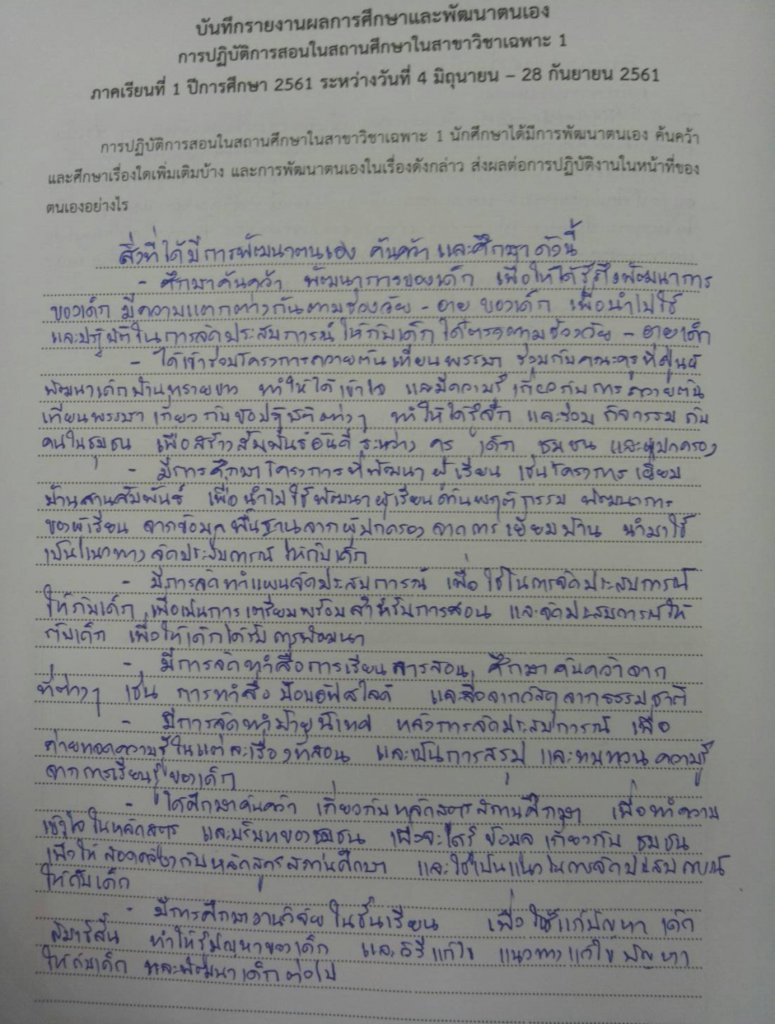 บันทึกรายงานผลการศึกษาและพัฒนาตนเอง
การปฏิบัติการสอนในสถานศึกษาในสาขาวิชาเฉพาะ 1
ภาคเรียนที่ 1 ปีการศึกษา 2561 ระหว่างวันที่ 4 มิถุนายน – 28 กันยายน 2561
การปฏิบัติการสอนในสถานศึกษาในสาขาวิชาเฉพาะ 1 นักศึกษาได้มีการพัฒนาตนเอง ค้นคว้า
และศึกษาเรื่องใดเพิ่มเติมบ้าง และการพัฒนาตนเองในเรื่องดังกล่าว ส่งผลต่อการปฏิบัติงานในหน้าที่ของ
ตนเองอย่างไร
สิ่งที่ได้มีการพัฒนาตนเอง ค้นคว้า และศึกษา ดังนี้
- ศึกษาค้นคว้า พัฒนาการของเด็ก เพื่อให้ได้รู้ถึงพัฒนาการ
ของเด็ก มีความแตกต่างกันตามช่วงวัย - อายุ ของเด็ก เพื่อนำไปใช้
และปฏิบัติในการจัดประสบการณ์ให้กับเด็ก ได้ตรงตามช่วงวัย - อายุเด็ก
- ได้เข้าร่วมโครงการถวายต้นเทียนพรรษา ร่วมกับคณะครูที่ศูนย์
พัฒนาเด็กบ้านทรายขาว ทำให้ได้เข้าใจ และมีความรู้เกี่ยวกับการถวายต้น
เทียนพรรษา เกี่ยวกับข้อปฏิบัติต่างๆ ทำให้ได้รู้จัก และร่วม กิจกรรม กับ
คนในชุมชน เพื่อสร้างสัมพันธ์อันดี ระหว่าง ครู เด็ก ชุมชน และผู้ปกครอง
- มีการศึกษาโครงการที่พัฒนาผู้เรียน เช่นโครงการเยี่ยม
บ้านสานสัมพันธ์ เพื่อนำไปใช้พัฒนาผู้เรียนด้านพฤติกรรม พัฒนาการ
ของผู้เรียน จากข้อมูลพื้นฐานจากผู้ปกครอง จากการเยี่ยมบ้าน นำมาใช้
เป็นแนวทางจัดประสบการณ์ ให้กับเด็ก
- มีการจัดทำแผนจัดประสบการณ์ เพื่อใช้ในการจัดประสบการณ์
ให้กับเด็ก เพื่อเป็นการเตรียมพร้อมสำหรับการสอน และจัดประสบการณ์ให้
กับเด็ก เพื่อให้เด็กได้รับการพัฒนา
- มีการจัดทำสื่อการเรียนการสอน ศึกษาค้นคว้าจาก
ที่ต่างๆ เช่น การทำสื่อ และสื่อจากวัสดุจากธรรมชาติ
- มีการจัดทำป้ายนิเทศ หลังการจัดประสบการณ์ เพื่อ
ถ่ายทอดความรู้ในแต่ละเรื่องที่สอน และเป็นการสรุป และทบทวนความรู้
จากการเรียนรู้ของเด็ก
- ได้ศึกษาค้นคว้า เกี่ยวกับหลักสูตรสถานศึกษา เพื่อทำความ
เข้าใจในหลักสูตร และบริบทของชุมชน เพื่อจะได้รู้ข้อมูล เกี่ยวกับ ชุมชน
เพื่อให้สอดคล้องกับหลักสูตรสถานศึกษา และใช้เป็นแนวในการจัดประสบการณ์
ให้กับเด็ก
- มีการศึกษางานวิจัยในชั้นเรียน เพื่อใช้แก้ปัญหา เด็ก
สมาธิสั้น ทำให้รู้ปัญหาของเด็ก และวิธีแก้ไข แนวทางแก้ไข ปัญหา
ให้กับเด็ก และพัฒนาเด็กต่อไป